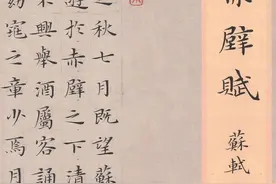 赤壁賦
蘇軾
之秋七月既望蘇
遊於赤壁之下清
不興舉酒屬客誦
窈窕之章少焉月